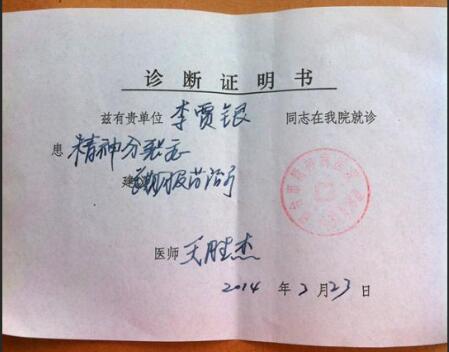 诊断证明书
兹有贵单位 李贾银 同志在我院就诊
患 精神分裂症
建 长期服药治疗
医师 王胜杰
2014 年 3 月 23 日